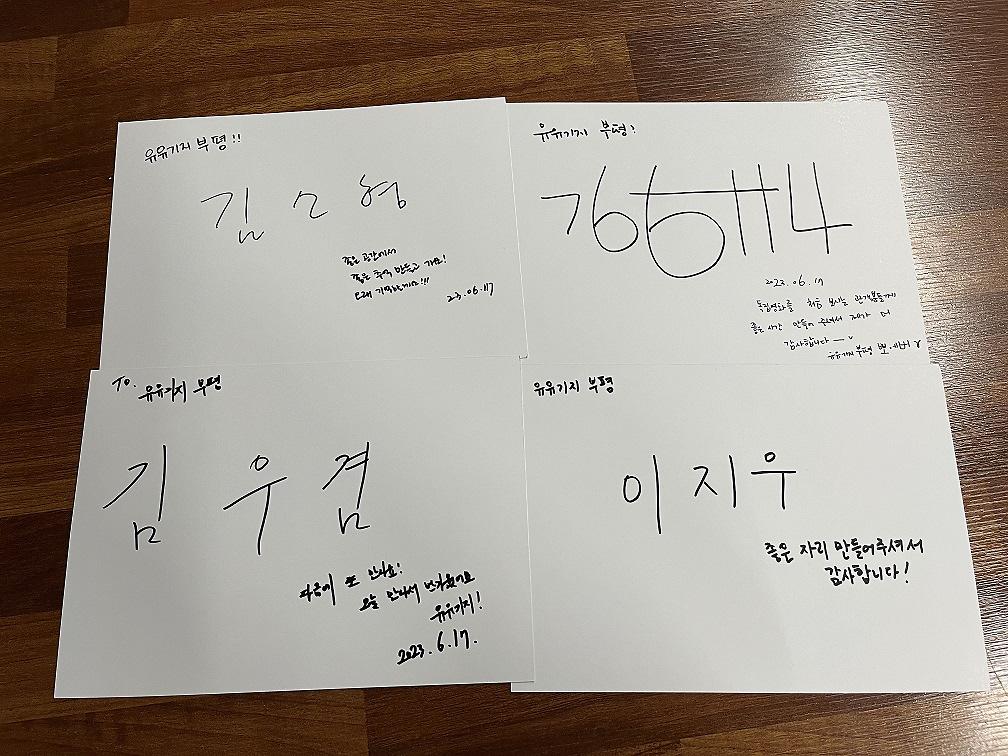 유유기지 부평!!
김소형
좋은 공간에서
좋은 추억 만들고 가요!
오래 기억할게요!!!
23.06.17
유유기지 부평!
2023.06.17
독립영화를 처음 보시는 관객분들께
좋은 시간 만들어 주셔서 제가 더
감사합니다
유유기지 부평 뽀에버
To. 유유기지 부평
김우겸
다음에 또 만나요!
오늘 만나서 반가웠어요
유유기지!
2023.6.17.
유유기지 부평
이지우
좋은 자리 만들어주셔서
감사합니다!